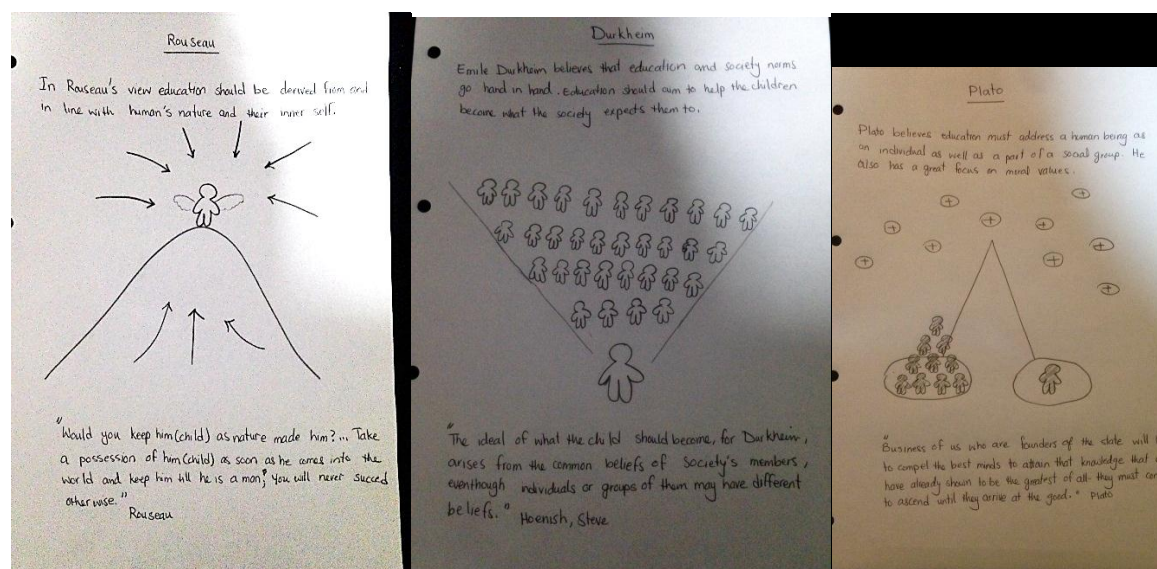 Rouseau
In Rouseau's view education should be derived from and
in line with human's nature and their inner self.
"Would you keep him(child) as nature made him?... Take
a possession of him(child) as soon as he comes into the
world and keep him till he is a man; You will never succed
otherwise."
Rouseau
Durkheim
Emile Durkheim believes that education and society norms
go hand in hand. Education should aim to help the children
become what the society expects them to.
"The ideal of what the child should become, for Durkheim,
arises from the common beliefs of society's members,
eventhough individuals or groups of them may have different
beliefs." Hoenish, Steve
Plato
Plato believes education must address a human being as
an individual as well as a part of a social group. He
also has a great focus on moral values.
"Business of us who are founders of the state will
to compel the best minds to attain that knowledge that
have already shown to be the greatest of all- they must
to ascend until they arrive at the good." Plato